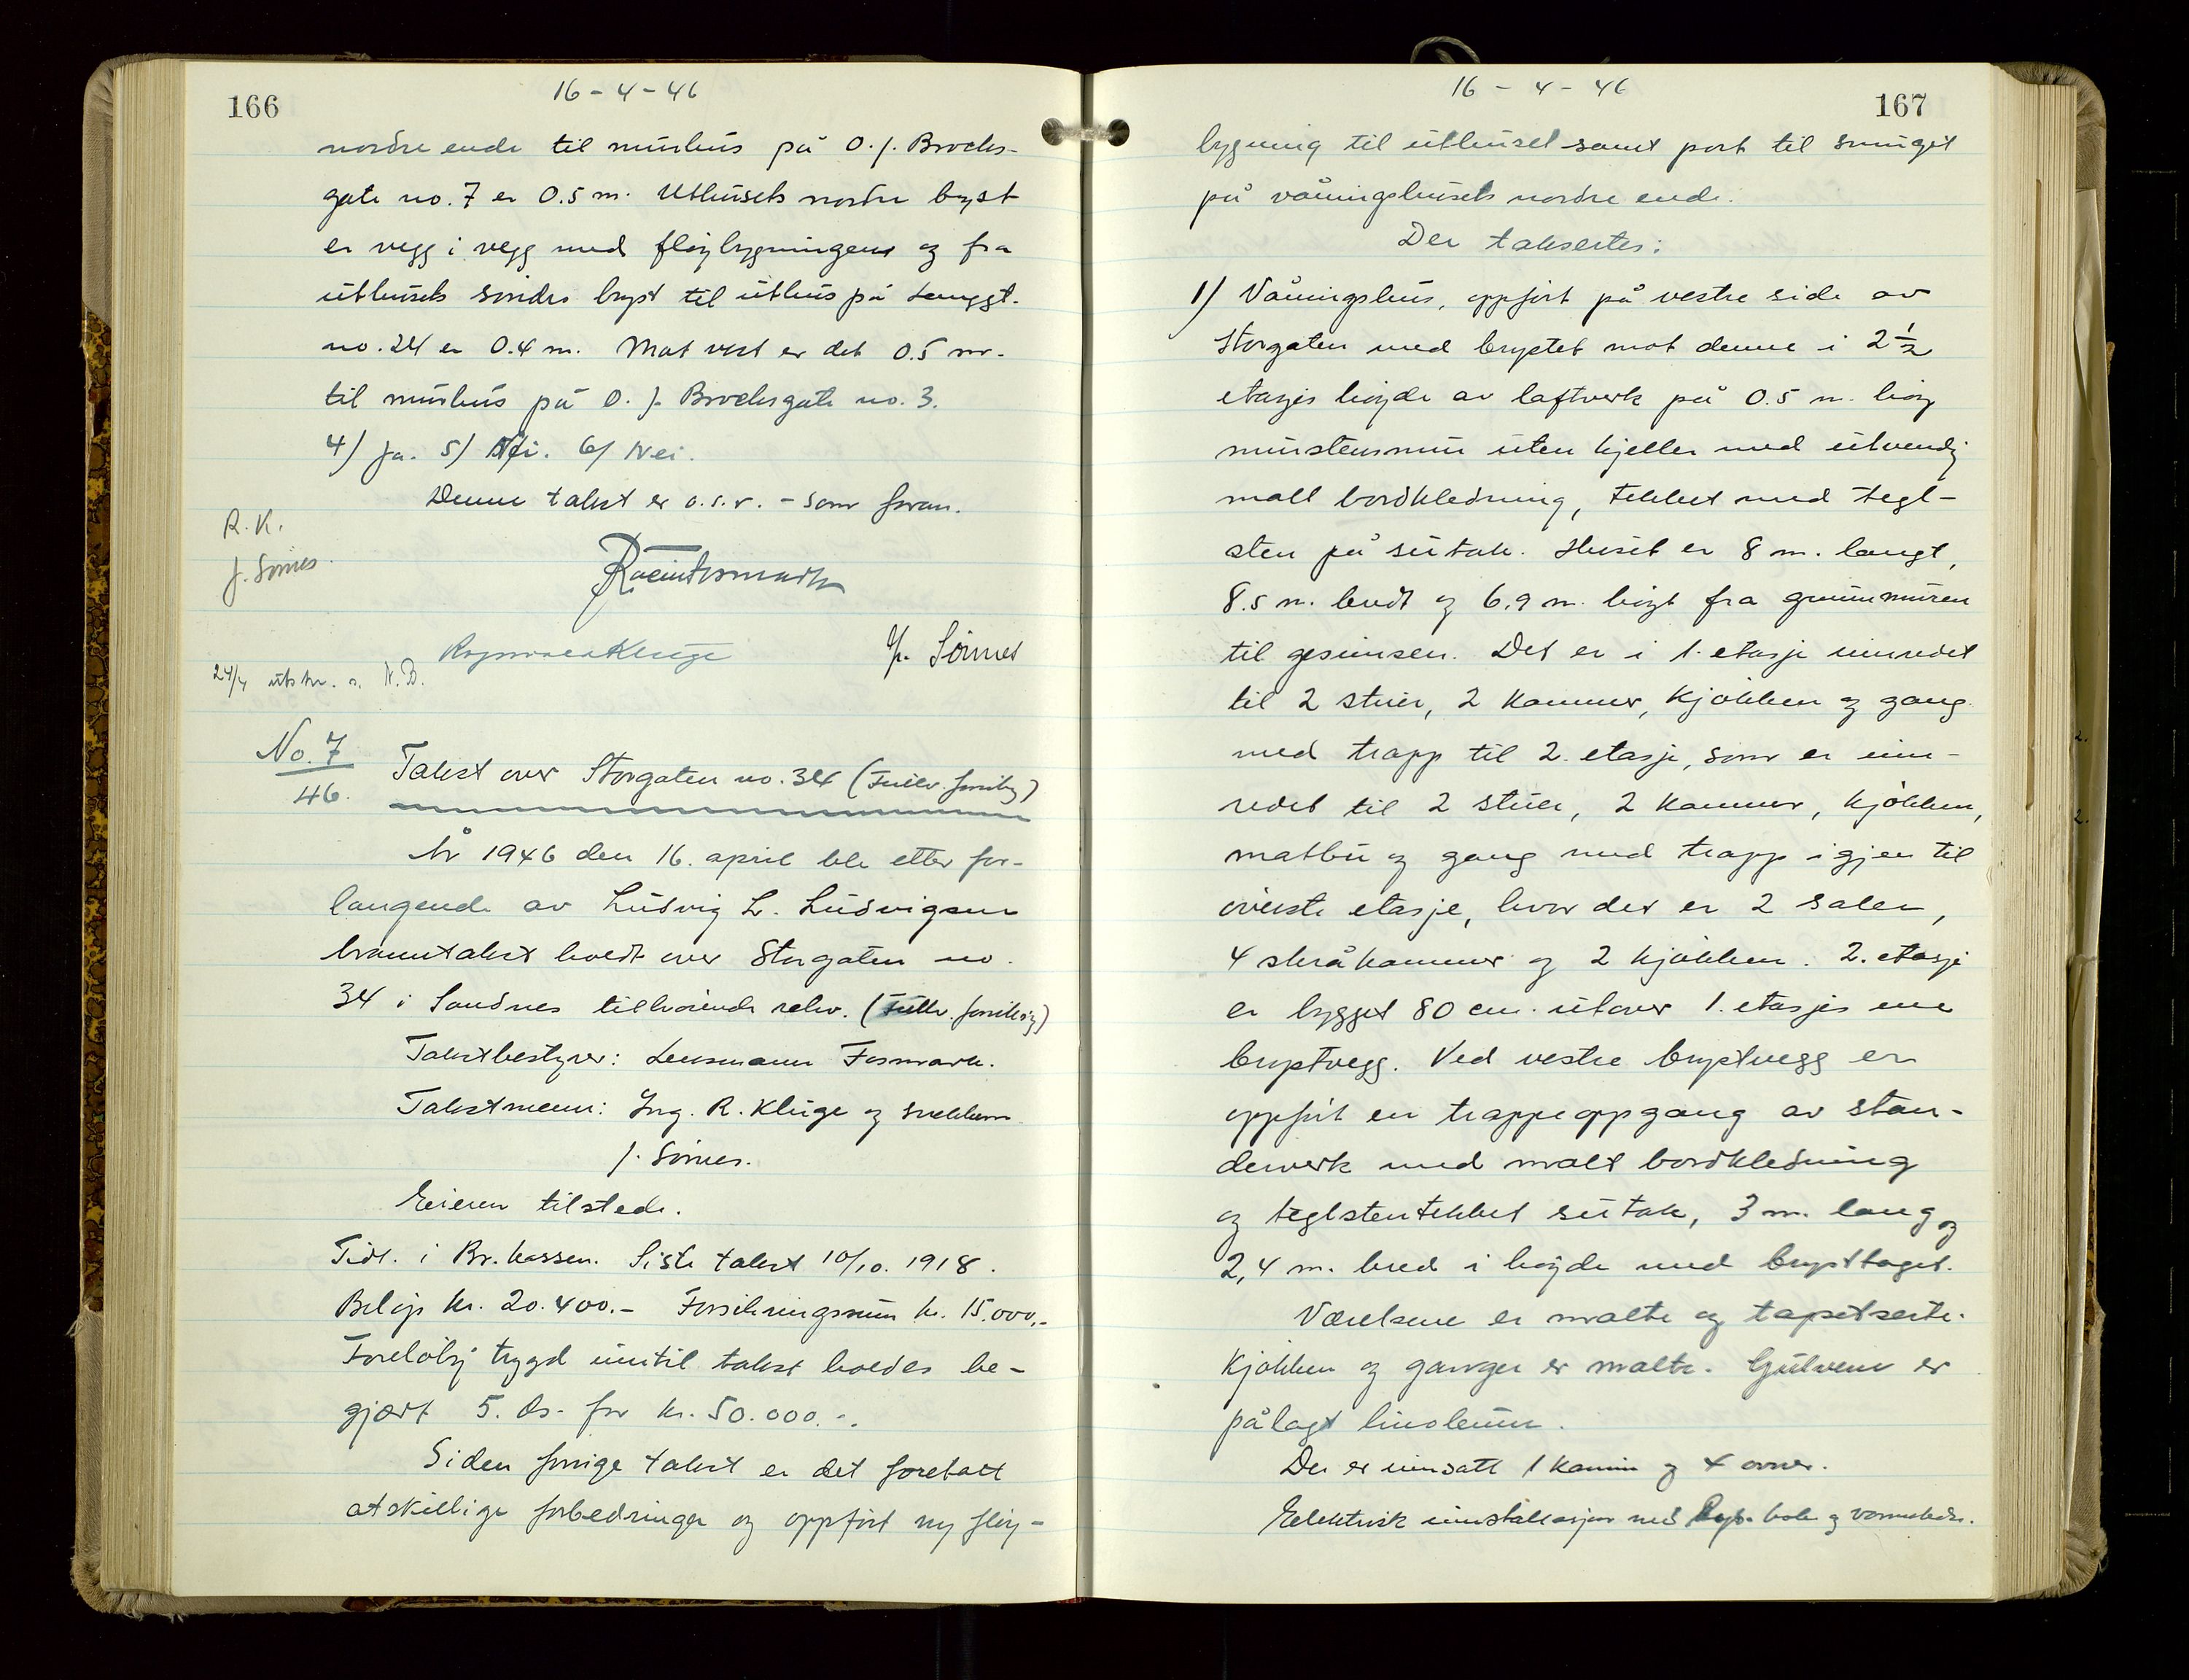 166
16-4-46
nordre ende til murhus på O. J. Brochs-
gate no. 7 er 0.5 m. Uthusets nordre bryst
er vegg i vegg med fløybygningens og fra
uthusets söndre bryst til uthus på Langgt.
no. 24 er 0.4 m. Mot vest er det 0.5 m.
til murhus på O. J. Brochsgate no. 3.
4) Ja. 5) Nei. 6) Nei.
Denne takst er o.s.v. - som foran.
R. K.
J. Sömes
Ragnvald Kluge
J. Sömes
24/4 utskr. s. N.B.
No. 7
46.
Takst over Storgaten no. 34 (Fullv. forsikr)
År 1946 den 16. april ble etter for-
langende av Ludvig L. Ludvigsen
branntakst holdt over Storgaten no.
34 i Sandnes tilhörende rekv. (Fullv. forsikring)
Takstbestyrer: Lensmann Fosmark.
Takstmenn: Ing. R. Kluge og snekkerm
J. Sömes.
Eieren tilstede.
Tidl. i Br. kassen. Siste takst 10/10. 1918.
Beløp kr. 20.400.- Forsikringssum kr. 15.000.-
Foreløbig trygd inntil takst holdes be-
gjært 5. ds. for kr. 50.000.-.
Siden forrige takst er det foretatt
atskillige forbedringer og oppført ny fløy-
16 - 4 - 46
167
bygning til uthuset samt port til smuget
på våningshusets nordre ende.
Der takseres:
1) Våningshus, oppført på vestre side av
Storgaten med brystet mot denne i 2 1/2
etasjes høyde av laftverk på 0.5 m. høy
murstensmur uten kjeller med utvendig
malt bordkledning, tekket med tegl-
sten på sutak. Huset er 8 m. langt,
8.5 m. bredt og 6.9 m. høyt fra grunnmuren
til gesimsen. Det er i 1. etasje innredet
til 2 stuer, 2 kammer, kjökken og gang
med trapp til 2. etasje, som er inn-
redet til 2 stuer, 2 kammer, kjökken,
matbu og gang med trapp igjen til
överste etasje, hvor der er 2 saler,
4 skråkammer og 2 kjökken. 2. etasje
er bygget 80 cm. utover 1. etasjes ene
brystvegg. Ved vestre brystvegg er
oppført en trappeoppgang av stan-
derverk med malt bordkledning
og teglstentekket sutak, 3 m. lang og
2,4 m. bred i høyde med brysttaget.
Værelsene er malte og tapetserte.
Kjökken og ganger er malte. Gulvene er
pålagt linoleum.
Der er innsatt 1 kamin og 4 ovner.
Elektrisk installasjon med lys- kok og varmeledn.